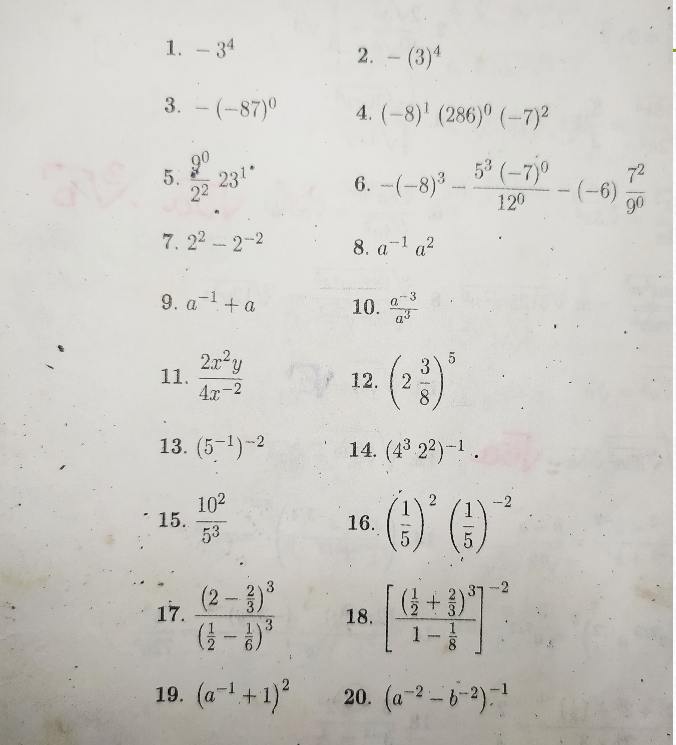 1. −3⁴ 2. −(3)⁴
3. −(−87)⁰ 4. (−8)¹ (286)⁰ (−7)²
5. 9⁰/2² 23¹ 6. −(−8)³ − 5³ (−7)⁰/12⁰ − (−6) 7²/9⁰
7. 2² − 2⁻² 8. a⁻¹ a²
9. a⁻¹ + a 10. a⁻³/a³
11. 2x²y/4x⁻² 12. (2 3/8)⁵
13. (5⁻¹)⁻² 14. (4³ 2²)⁻¹ .
15. 10²/5³ 16. (1/5)² (1/5)⁻²
17. (2 − 2/3)³/(1/2 − 1/6)³ 18. [(1/2 + 2/3)³/(1 − 1/8)]⁻²
19. (a⁻¹ + 1)² 20. (a⁻² − b⁻²)⁻¹